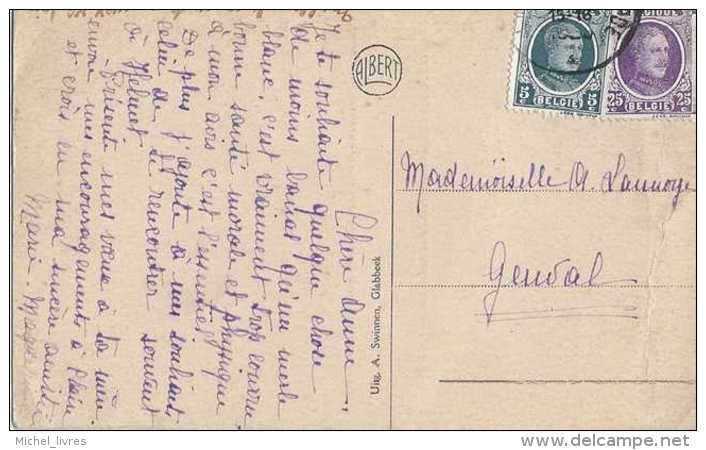 Chère Anne,
Je te souhaite quelque chose
de moins banal qu'un merle
blanc, c'est vraiment trop couru
bonne santé morale et physique
à mon avis c'est l'essentiel
De plus j'ajoute à mes souhaits
celui de se rencontrer souvent
à Helmet
Présente mes vœux à ta mère
mes encouragements à
et crois en ma sincère amitié
Marie-
ALBERT
Uitg. A. Swinnen, Glabbeek
5 5
BELGIE
25 25
BELGIE
Mademoiselle A. Lannoye
Genval
Michel_livres
www.delcampe.net